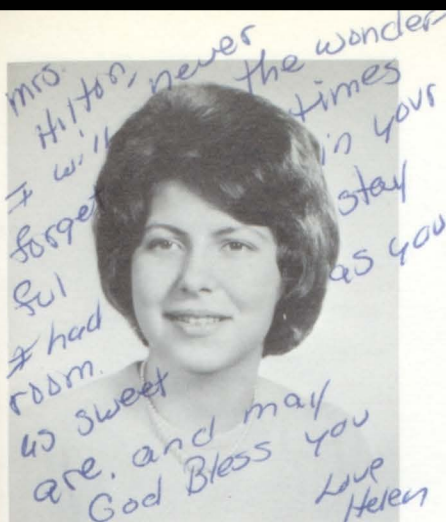 Mrs.
Hilton,
I will never
forget the wonder-
ful times
I had in your
room. stay
as sweet as you
are, and may
God Bless you
Love
Helen